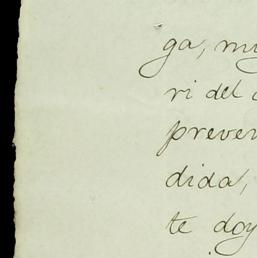 ga, my
ri del
preven
dida,
te doy